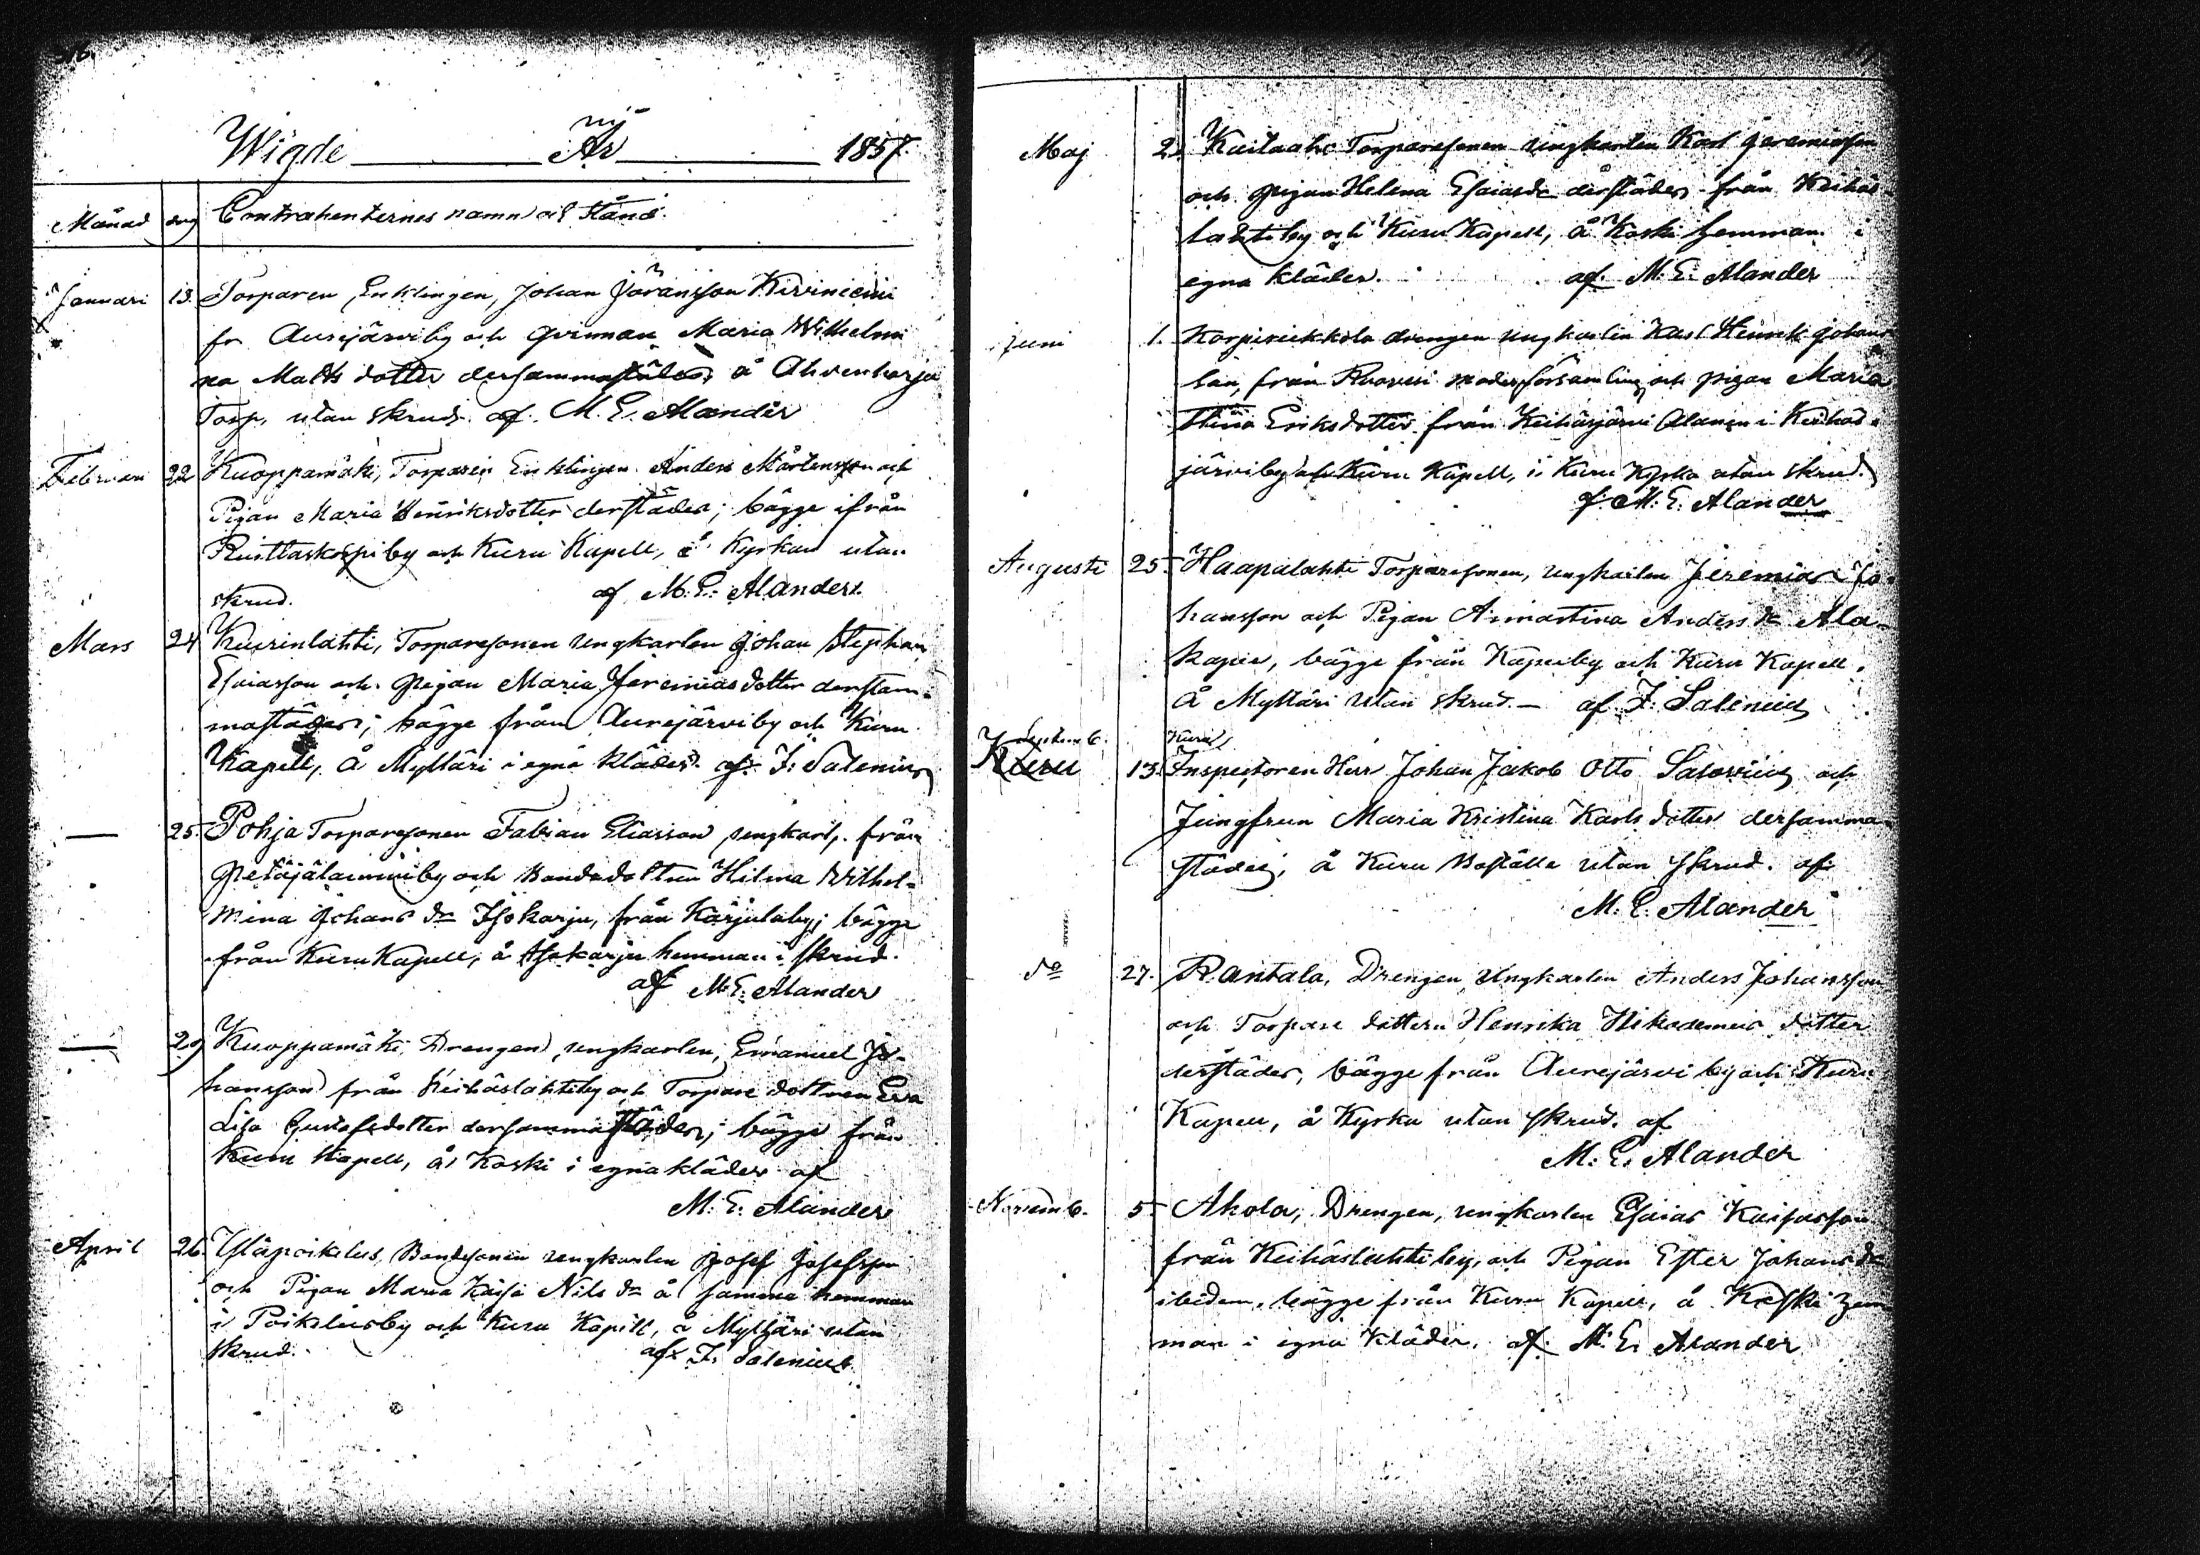 Wigde nij År 1857.
Månad dag Contrahenternes namn och stånd.
Januari 13. Torparen, Enklingen, Johan Jöransson Kiviniemi
fr Aurejärviby och qvinnan Maria Wilhelmi
na Matts dotter dersammastädes, å Ahvenharju
Torp, utan skrud. af. M. E. Alander
Februari 22 Kuoppamäki, Torparen Enklingen Anders Mårtensson och
Pigan Maria Henriksdotter derstädes; bägge ifrån
Riuttaskorpiby och Kuru Kapell, å Kyrkan utan
skrud. af M. E. Alander.
Mars 24 Kuurinlahti, Torparesonen ungkarlen Johan Stephan
Esaiasson och Pigan Maria Jeremias dotter dersam-
mastädes; bägge från Aurejärviby och Kuru
Kapell, å Mylläri i egna kläder. af. F. Salenius
— 25. Pohja Torparesonen Fabian Eliasson ungkarl, från
Petäjälammiby och Bondedottren Hilma Wilhel-
mina Johans dr Isokarju, från Karjulaby; bägge
från Kuru Kapell, å Isokarju hemman i skrud.
af M. E. Alander
— 29 Kuoppamäki, Drengen, ungkarlen, Emanuel Jo-
hansson från Keihäslahtiby och Torpare dottren Eva
Lisa Gustafsdotter dersammastädes; bägge från
Kuru Kapell, å Koski i egna kläder af
M. E. Alander
April 26. Yläpoikelus, Bondesonen ungkarlen Josef Josefsson
och Pigan Maria Kaisa Nils dr å samma hemman
i Poikelusby och Kuru Kapell, å Mylläri utan
skrud. af F. Salenius.
Maj 2. Torparesonen ungkarlen Karl Jeremiasson
och pigan Helena Esaiasdr derstädes från Keihäs-
lahtiby och Kuru Kapell, å Koski hemman i
egna kläder. af. M. E. Alander
Juni 1. drengen ungkarlen Karl Henrik
från Ruovesi moderförsamling och pigan Maria
Stina Eriksdotter från Keihäsjärvi Alanen i Keihäs-
järviby och Kuru Kapell, i Kuru Kyrka utan skrud.
af. M. E. Alander
Augusti 25. Haapalahti Torparesonen, ungkarlen Jeremias Jo-
hansson och Pigan Annastina Anders dr Ala-
kapee, bägge från Kapeeby och Kuru Kapell.
å Mylläri utan skrud. — af F. Salenius
Septemb. Kuru
Kuru 13. Inspectoren Herr Johan Jakob Otto och
Jungfrun Maria Kristina Karls dotter dersamma-
städes, å Kuru Boställe utan skrud. af
M. E. Alander
do 27. Rantala, Drengen, Ungkarlen Anders Johansson
och Torpare dottern Henrika Nikodemus dotter
derstädes, bägge från Aurejärvi by och Kuru
Kapell, å Kyrka utan skrud. af
M. E. Alander
Novemb. 5 Ahola, Drengen, ungkarlen Esaias Kaifasson
från Keihäslahti by, och Pigan Ester Johans dr
ibidem, bägge från Kuru Kapell, å Koski hem
man i egna kläder. af M. E. Alander